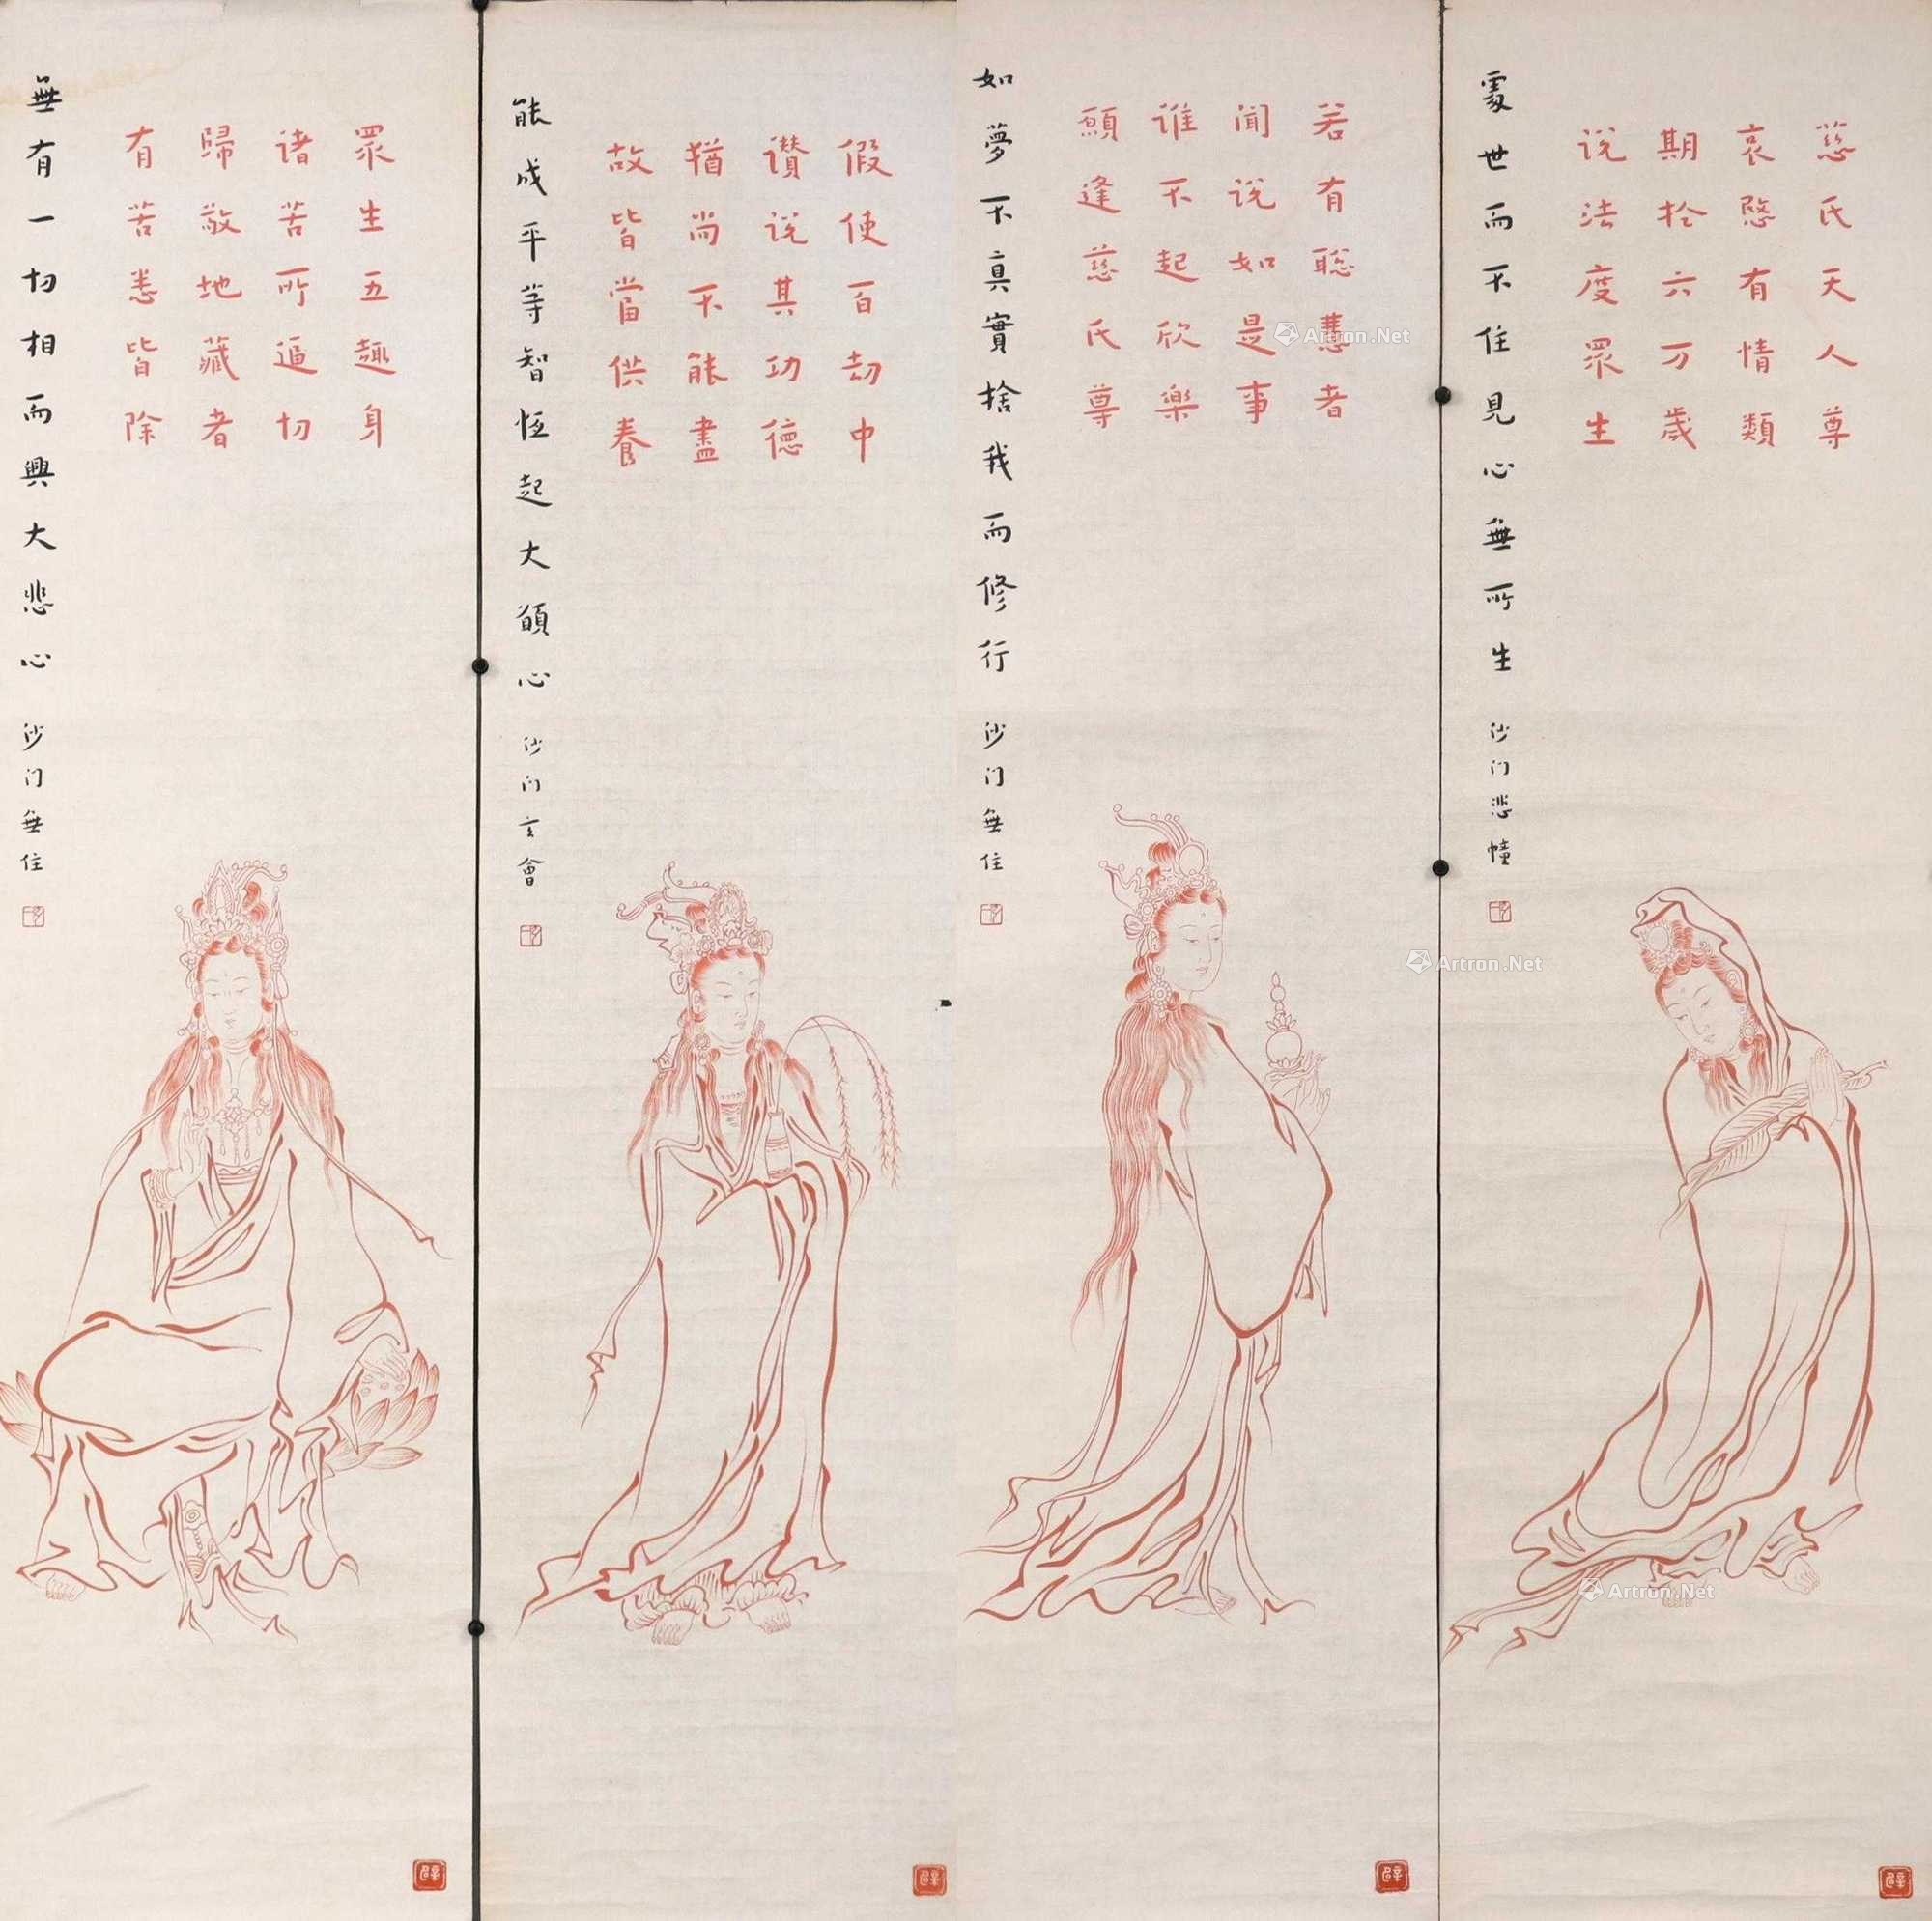 慈氏天人尊
哀愍有情類
期於六万歲
说法度眾生
處世而不住見心無所生
沙门悲幢
若有聡慧者
闻说如是事
谁不起欣樂
願逢慈氏尊
如夢不真實捨我而修行
沙门無住
假使百劫中
讃说其功德
猶尚不能盡
故皆當供養
能成平等智恆起大願心
沙门玄會
眾生五趣身
诸苦所逼切
歸敬地藏者
有苦悉皆除
無有一切相而興大悲心
沙门無住
Artron.Net
Artron.Net
Artron.Net